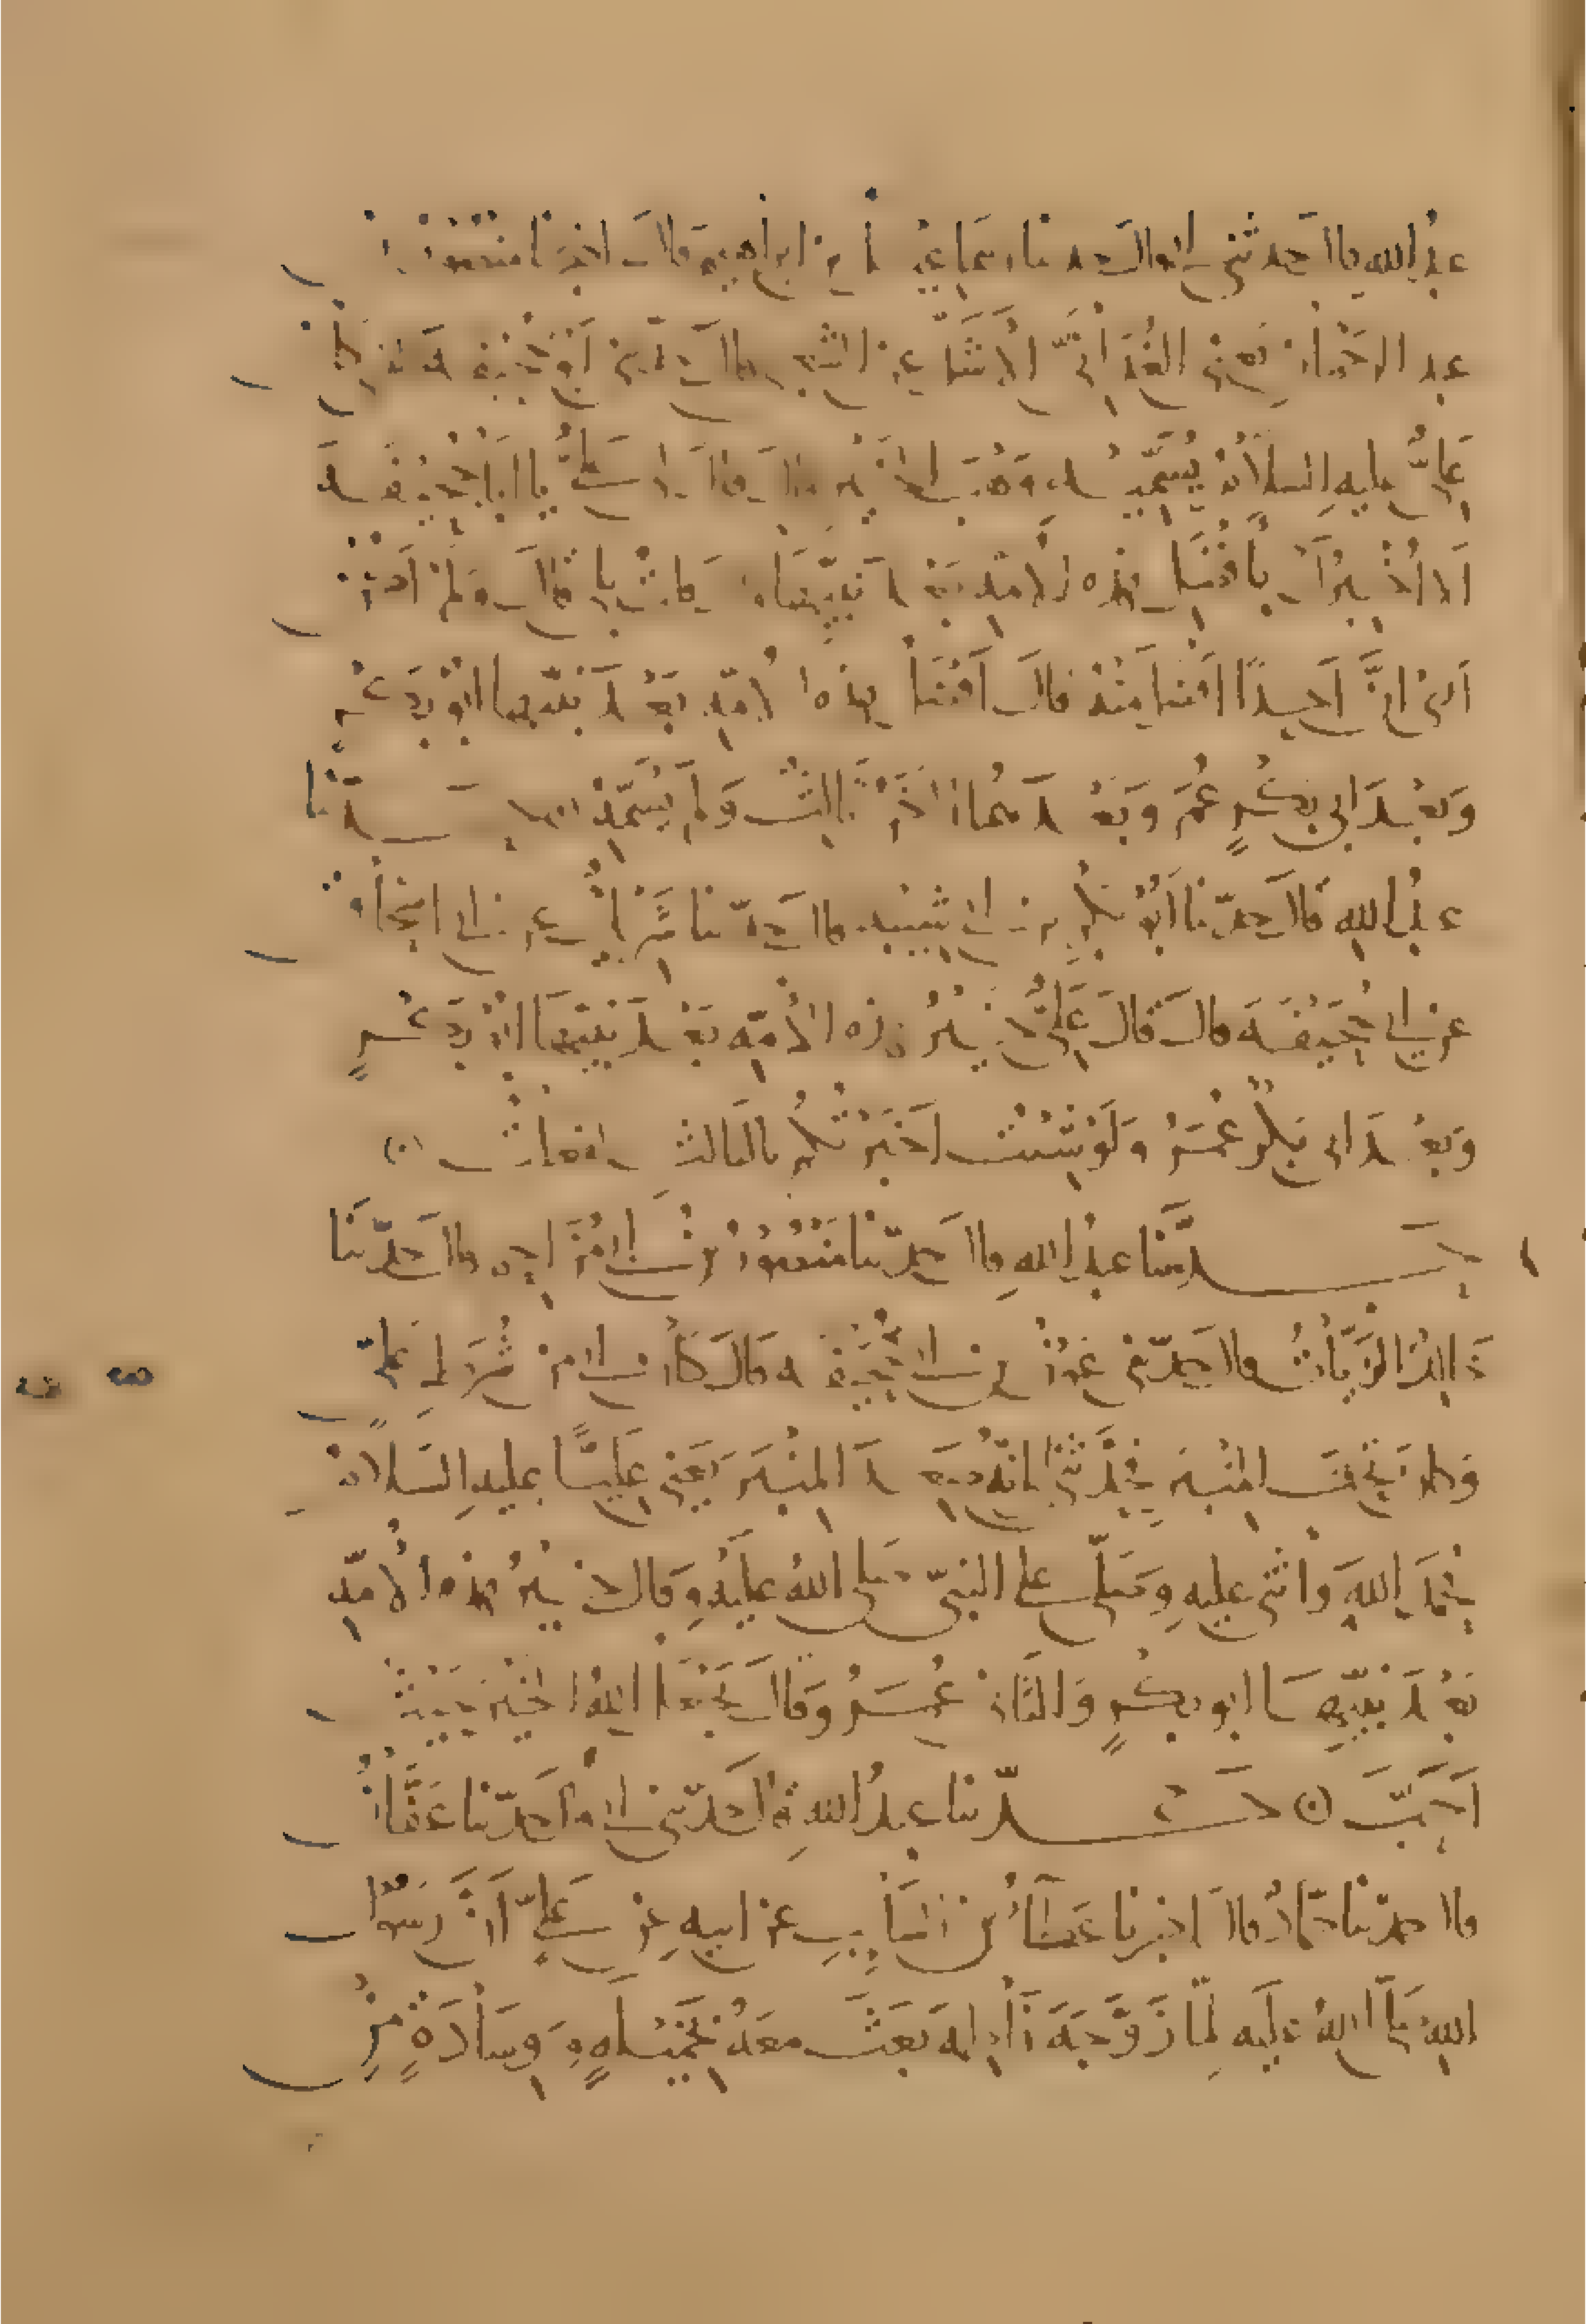 عبدُ الله قال حدثني ابي قال حدثنا اسماعيل بن ابراهيم قال اخبرنا منصور بن
عبد الرحمان يعني الغُدَانيَّ الأشَلَّ عن الشعبي قال حدّثني أبو جُحَيفة الذي كان
عَليٌّ عليه السلامُ يُسَمِّيهُ وَهْبَ الخَيْرِ قالَ قالَ لي عَليٌّ يا أبا جُحَيْفَةَ
ألا أُخْبِرُكَ بأفْضَلِ هذه الأمة بَعْدَ نَبِيِّهَا قال قلت بلى قالَ ولمْ أكنْ
أرى انَّ أحدًا أفضل مِنْهُ قالَ أفْضَلُ هذه الأمّةِ بَعْدَ نبيّها ابُو بَكْرٍ
وَبعْدَ ابي بكْرٍ عُمَرُ وَبَعْدَهما آخَرُ ثَالِثٌ وَلمْ يُسَمِّهِ حَدَّثنا
عبدُ الله قالَ حدّثنا أبُو بكرِ بن ابي شيبة قال حدّثنا شَرِيكٌ عن ابي اسحاق
عن ابي جُحَيْفَةَ قالَ قالَ عَلِيٌّ خَيْرُ هذه الأُمّةِ بَعْدَ نَبِيّهَا ابُو بَكْرٍ
وَبعْدَ ابي بَكْرٍ عُمَرُ وَلَوْ شِئْتُ اَخْبَرْتُكُمْ بالثالث لفعلتُ
حَدَّثنا عبدُ اللهِ قال حدّثنا مَنْصُورُ بنُ ابي مُزَاحِم قال حَدّثنا
خَالِدٌ الزَيَّاتُ قال حدّثني عَوْنُ بن ابي جُحَيْفَة قالَ كانَ ابي من شُرَطِ عَليّ
وَكان تَحْتَ المِنْبَرِ فَحَدَّثَنِي أنّهُ صَعِدَ المِنْبَرَ يَعْني عَلِيًّا عليهِ السَلامُ
فحَمَدَ اللهَ وأثْنى عليهِ وَصَلّى على النبيّ صلى اللهُ عليْهِ وَقال خَيْرُ هذه الأمّةِ
بَعْدَ نبيّهَا ابو بكْرٍ وَالثَّاني عُمَرُ وَقالَ يَجْعَلُ اللهُ الخَيْرَ حَيْثُ
أحَبَّ حَدّثنا عبدُ اللهِ قال حَدّثني ابي قال حَدّثنا عَفّانُ
قال حدّثنا حمّادٌ قال اخبرنا عَطَاءُ بن السَّايِبِ عن ابيهِ عن عَلِيٍّ أنَّ رَسُولَ
اللهِ صلّى اللهُ عليه لمّا زَوَّجَهُ فَاطِمَةَ بَعَثَ معَهُ بخَمِيْلَةٍ وَوِسَادَةٍ مِنْ